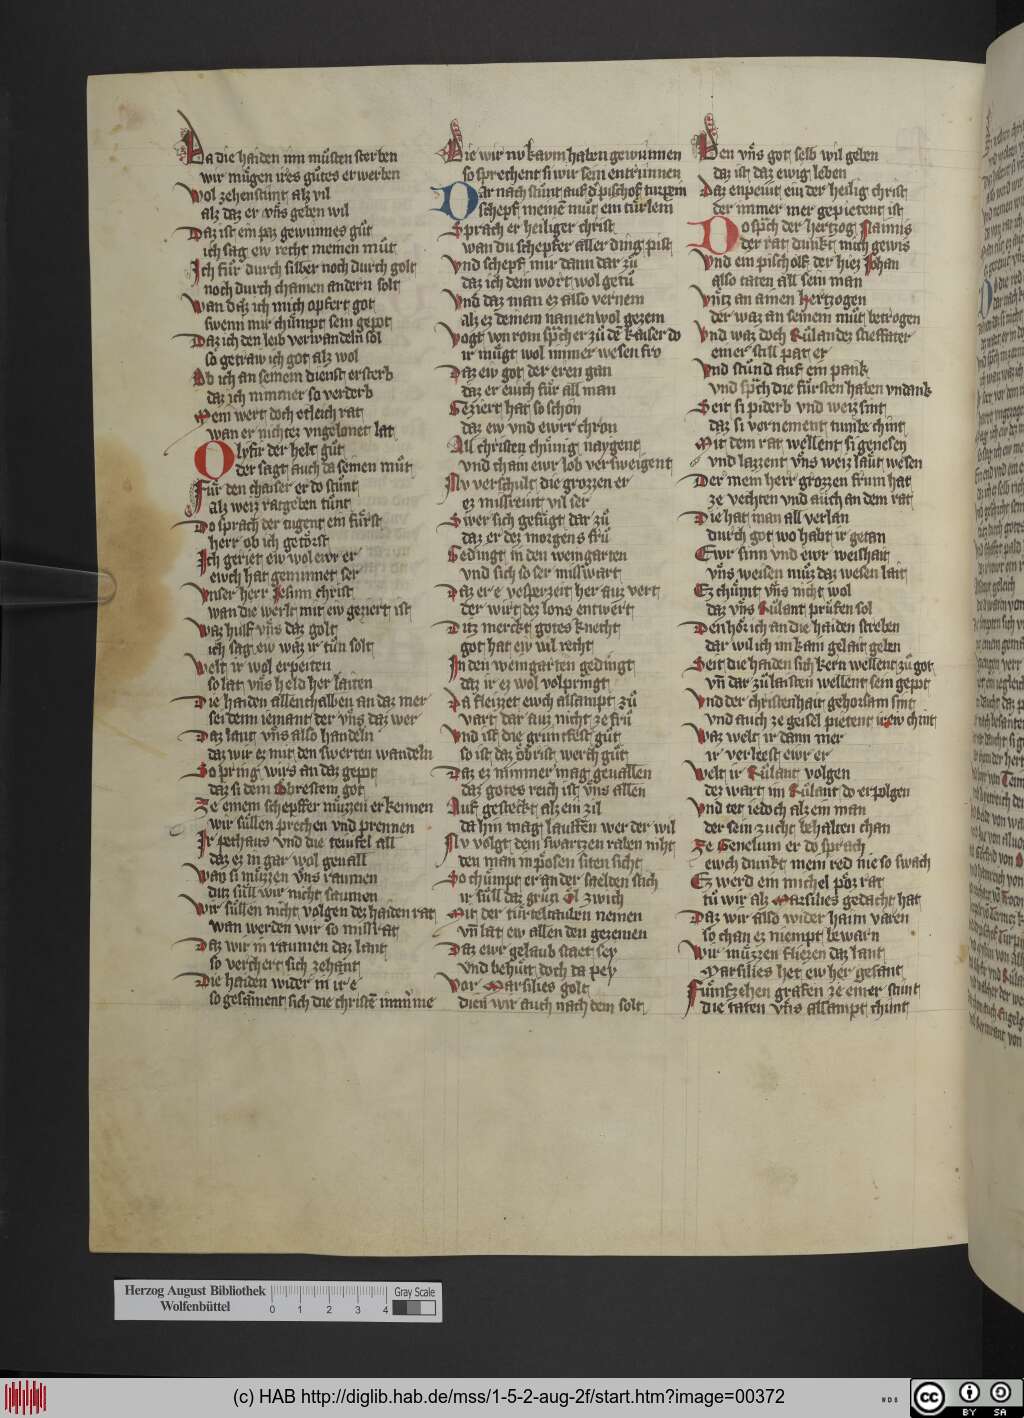 Da die haiden inn muͤsten sterben
wir muͤgen ires guͤtes erwerben
Wol zehenstunt alz vil
alz daz er vns geben wil
Daz ist ein paz gewunnes guͤt
ich sag ew recht meinen muͤt
Ich fuͤr durch silber noch durch golt
noch durch chainen andern solt
Wan daz ich mich opfert got
swenn mir chuͤmpt sein gepot
Daz ich den leib verwandeln sol
so getraw ich got alz wol
Ob ich an seinem dienst ersterb
daz ich nimmer so verderb
Mein wert doch etleich rat
wan er nichtez vngelonet lat
Olyfir der helt guͤt
der sagt auch da seinen muͤt
Fuͤr den chaiser er do stuͤnt
alz weiz ratgeben tuͤnt
Do sprach der tugent ein fuͤrst
herr ob ich getoͤrst
Ich geriet ew wol ewr er
ewch hat geminnet ser
Vnser herr Jesum christ
wan die werlt mit ew geziert ist
Waz hulf vns daz golt
ich sag ew waz ir tuͤn solt
Welt ir wol erpeiten
so lat vns held her laiten
Die haiden allenthalben an daz mer
sei denn iemant der vns daz wer
Daz lant vns also handeln
daz wir ez mit den swerten wandeln
So pring wirs an daz gepot
daz si dem Obrestem got
Ze einem schepffer muͤzzen erkennen
wir suͤllen prechen vnd prennen
Ir pethaus vnd die teuifel all
daz ez in gar wol geuall
Wan si muͤzzen vns raumen
ditz suͤll wir nicht saumen
Wir suͤllen nicht volgen dez haiden rat
wan werden wir so missrat
Daz wir in raumen daz lant
so verchert sich zehant
Die haiden wider in ir e
so gesament sich die christen immer me
Die wir nv kaum haben gewunnen
so sprechent si wir sein entrunnen
Dar nach stuͤnt auf der pischof turpein
schepf meinem muͤt ein tuͤrlein
Sprach er heiliger christ
wan du schepfer aller ding pist
Vnd schepf mir dann dar zuͤ
daz ich dein wort wol getuͤ
Vnd daz man ez also vernem
alz ez deinem namen wol gezem
Vogt von rom sprach er zuͤ dem kaiser do
ir muͤgt wol immer wesen fro
Daz ew got der eren gan
daz er ewch fuͤr all man
Geziert hat so schon
daz ew vnd ewrr chron
All christen chuͤnig naygent
vnd cham ewr lob versweigent
Nv verschult die grozzen er
ez missreut vil ser
Swer sich gefuͤgt dar zuͤ
daz er dez morgens fruͤ
Gedingt in den weingarten
vnd sich so ser misswart
Daz er e vesperzeit her auz vert
der wirt dez lons entwert
Ditz merckt gotes knecht
got hat ew wil recht
In den weingarten gedingt
daz ir ez wol volpringt
Da fleizzet ewch allsampt zuͤ
vart dar auz nicht ze fruͤ
Vnd ist die gruntfest guͤt
so ist daz oͤbrist werch guͤt
Daz ez nimmer mag geuallen
daz gotes reich ist vns allen
Auf gesteckt alz ein zil
da hin mag lauffen wer der wil
Nv volgt dem swartzen raben niht
den man im posen siten sicht
So chuͤmpt er an der saelden stich
ir suͤll daz gruͤn oͤl zwich
Mit der tuͤrteltauben nemen
vn lat ew allen den gezemen
Daz ewr gelaub staet sey
vnd behuͤt doch da pey
Vor Marsilies golt
dien wir auch nach dem solt
Den vns got selb wil geben
daz ist daz ewig leben
Daz enpeiut ein der heilig christ
der immer mer gepietent ist
Do sprach der hertzog Naimis
der rat dunkt mich gewis
Vnd ein pischolf der hiez Johan
also taten all sein man
Vntz an ainen hertzogen
der waz an seinem muͤt betrogen
Vnd waz doch Ruͤlandez stieffater
einer still pat er
Vnd stuͤnd auf ein pank
vnd sprach die fuͤrsten haben vndank
Seit si piderb vnd weiz sint
daz si vornement tumbe chint
Mit dem rat wellent si genesen
vnd lazzent vns weiz laut wesen
Der mein herr grozzen frum hat
ze vechten vnd auch an dem rat
Die hat man all verlan
durch got wo habt ir getan
Ewr sinn vnd ewr weishait
vns weisen muͤz daz wesen lait
Ez chuͤmt vns nicht wol
daz vns Ruͤlant pruͤfen sol
Den hoͤr ich an die haiden streben
dar wil ich im kain gelait geben
Seit die haiden sich kern wellent zuͤ got
vn dar zuͤ laisten wellent sein gepot
Vnd der christenhait gehorsam sint
vnd auch ze geisel pietent irew chint
Waz welt ir dann mer
ir verleest ewr er
Welt ir Ruͤlant volgen
dez wart im Ruͤlant do erpolgen
Vnd tet iedoch alz ein man
der sein zucht behalten chan
Ze Genelum er do sprach
ewch dunkt mein red nie so swach
Ez werd ein michel poͤz rat
tuͤ wir alz Marsilies gedacht hat
Daz wir also wider haim varen
so chan ez niempt bewarn
Wir muͤzzen fliezen daz lant
Marsilies het ew her gesant
Fuͤnfzehen grafen ze einer stunt
die taten vns allsampt chunt
Herzog August Bibliothek
Wolfenbüttel
0 1 2 3 4
Gray Scale
(c) HAB http://diglib.hab.de/mss/1-5-2-aug-2f/start.htm?image=00372
WDB
CC BY SA